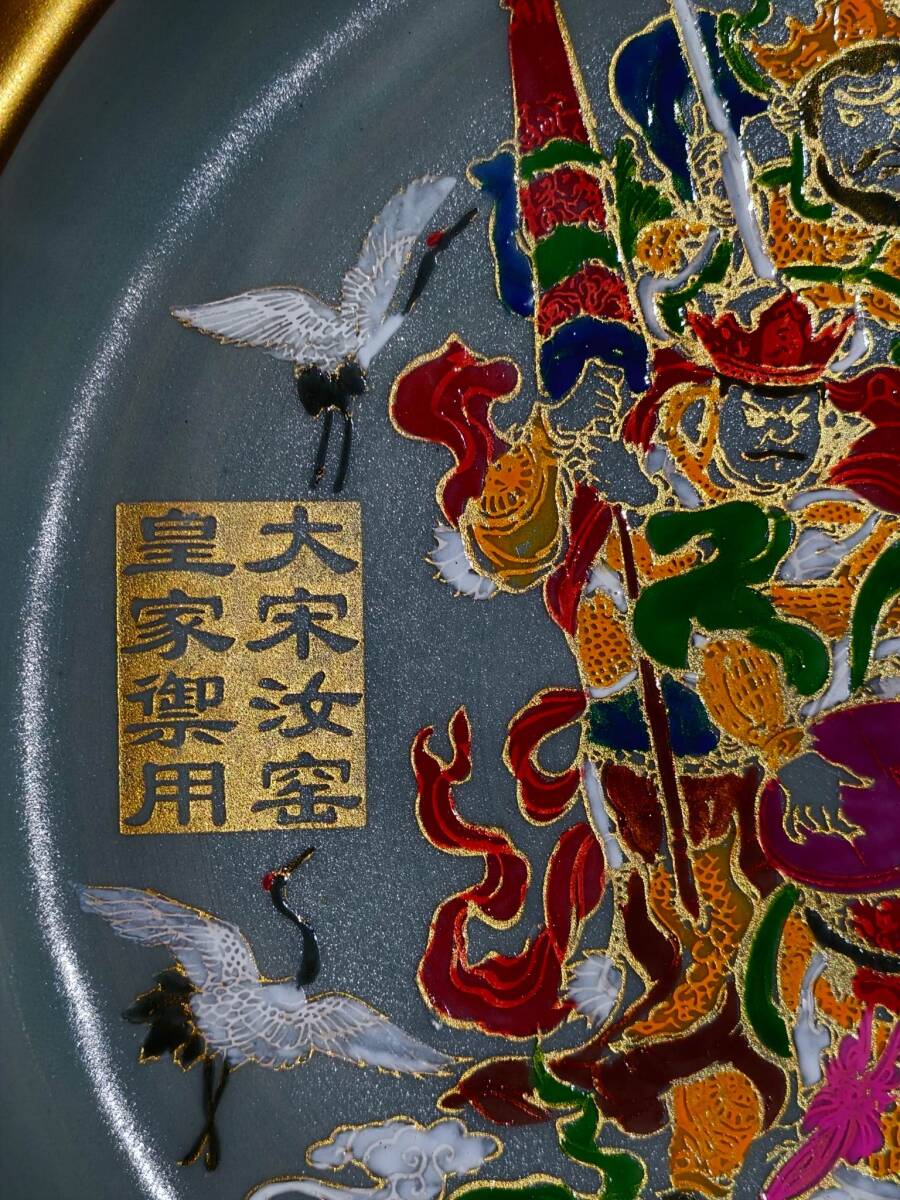 大宋汝窑
皇家御用